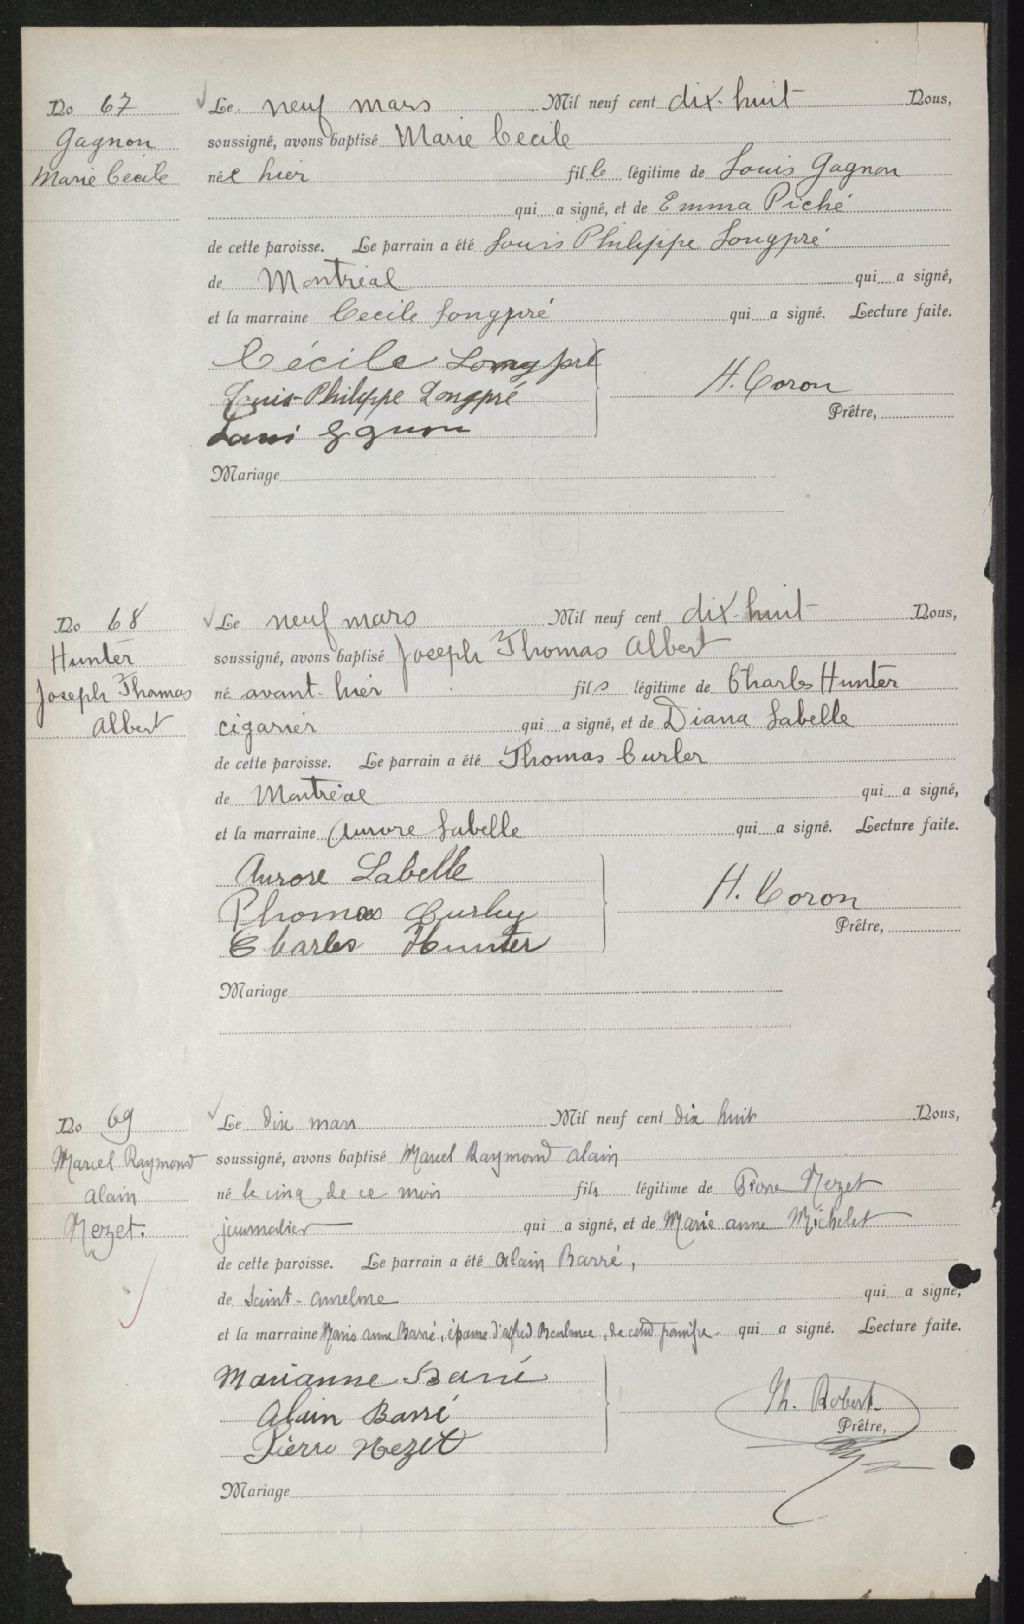 No 67
Gagnon
Marie Cecile
Le neuf mars Mil neuf cent dix-huit Nous,
soussigné, avons baptisé Marie Cecile
née hier fille légitime de Louis Gagnon
qui a signé, et de Emma Piché
de cette paroisse. Le parrain a été Louis Philippe Longpré
de Montréal qui a signé,
et la marraine Cecile Longpré qui a signé. Lecture faite.
Cécile Longpré
Louis-Philippe Longpré
H. Coron
Prêtre,
Mariage
No 68
Hunter
Joseph Thomas
Albert
Le neuf mars Mil neuf cent dix-huit Nous,
soussigné, avons baptisé Joseph Thomas Albert
né avant-hier fils légitime de Charles Hunter
cigarier qui a signé, et de Diana Labelle
de cette paroisse. Le parrain a été Thomas Curler
de Montréal qui a signé,
et la marraine Aurore Labelle qui a signé. Lecture faite.
Aurore Labelle
Thomas Curley
Charles Hunter
H. Coron
Prêtre,
Mariage
No 69
Marcel Raymond
Alain
Nezet.
Le dix mars Mil neuf cent dix huit Nous,
soussigné, avons baptisé Marcel Raymond Alain
né le cinq de ce mois fils légitime de Pierre Nezet
journalier qui a signé, et de Marie Anne Michelet
de cette paroisse. Le parrain a été Alain Barré,
de Saint-Anselme qui a signé,
et la marraine Marie Anne Barré, épouse d'Alfred de cette paroisse qui a signé. Lecture faite.
Marianne Barré
Alain Barré
Pierre Nezet
Th. Robert
Prêtre,
Mariage